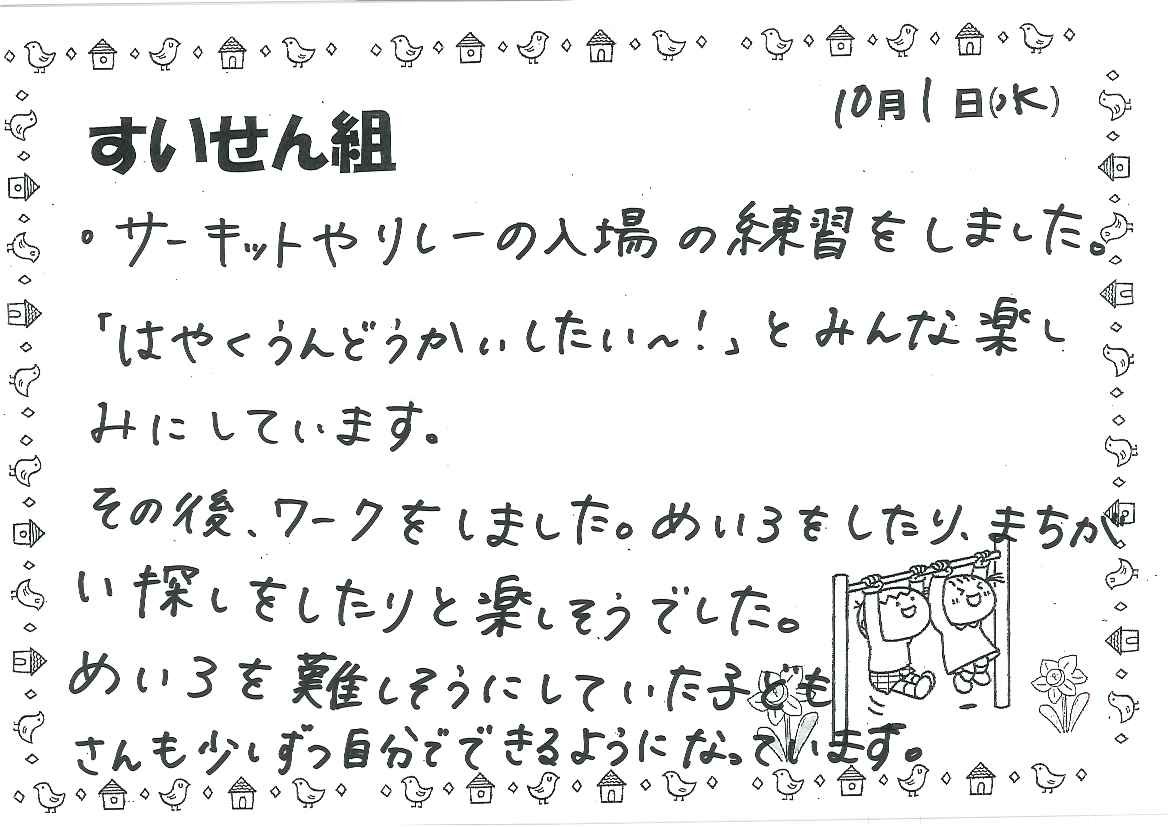 10月1日(水)
すいせん組
。サーキットやリレーの入場の練習をしました。
「はやくうんどうかいしたい～!」とみんな楽し
みにしています。
その後、ワークをしました。めいろをしたり、まちが
い探しをしたりと楽しそうでした。
めいろを難しそうにしていた子ども
さんも少しずつ自分でできるようになっています。